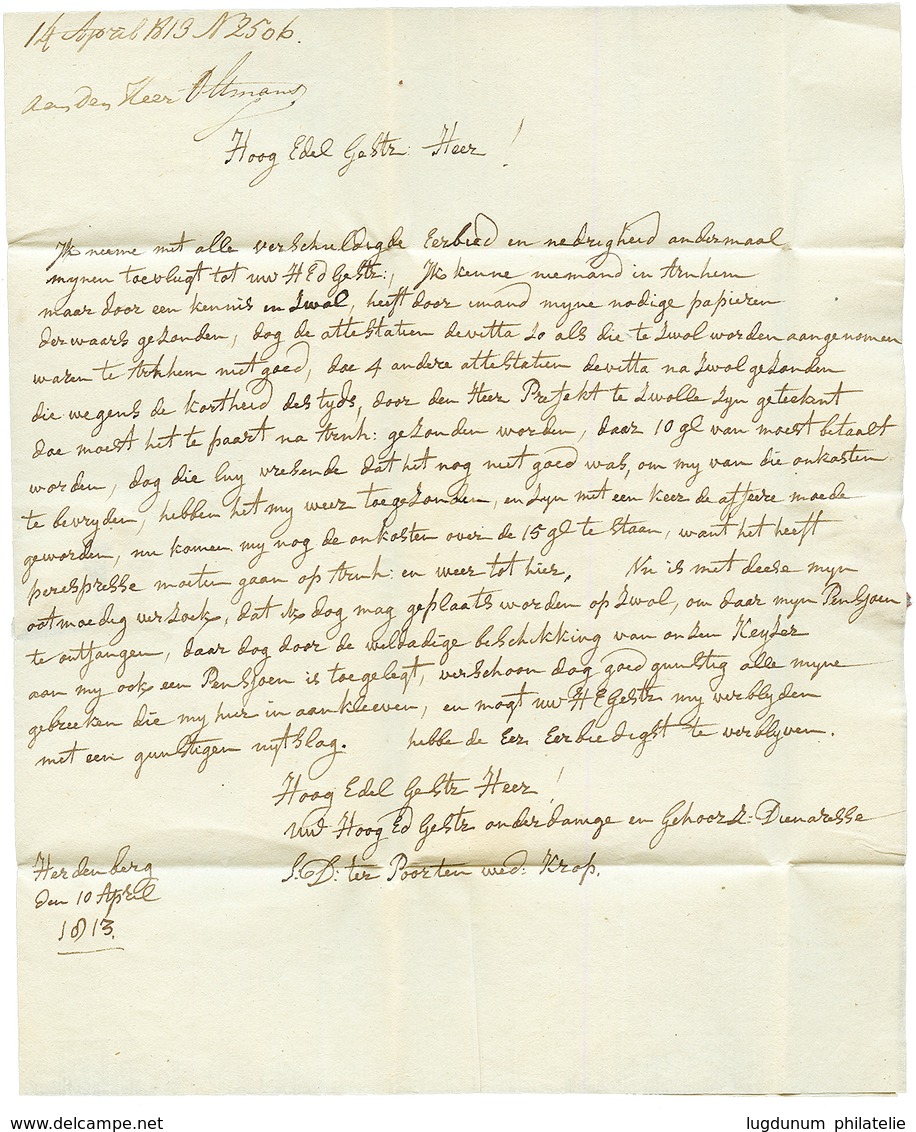 14 April 1813 N 2506.
aan den Heer Oltmans
Hoog Edel Gestr: Heer !
Ik neeme met alle verschuldigde Eerbied en nedrigheid andermaal
mynen toevlugt tot uw H Ed Gestr:, Ik kenne niemand in Arnhem
maar door een kennis in Zwol, heeft door imand myne nodige papieren
derwaars gezonden, dog de attestatien devitta zo als die te Zwol worden aangenomen
waren te Arnhem niet goed, doe 4 andere attestatien devitta na Zwol gezonden
die wegens de kortheid des tyds, door den Heer Prefekt te Zwolle zyn geteekent
doe moest het te paart na Arnh: gezonden worden, daar 10 gl van moest betaalt
worden, dog die luy vresende dat het nog niet goed was, om my van die onkosten
te bevryden, hebben het my weer toegezonden, en zyn met een keer de affeire moede
geworden, nu komen my nog de onkosten over de 15 gl te staan, want het heeft
perespresse moeten gaan op Arnh: en weer tot hier. Nu is met deese myn
ootmoedig verzoek, dat ik dog mag geplaats worden op Zwol, om daar myn Pensjoen
te ontfangen, daar dog door de weldadige beschikking van onzen Keyzer
aan my ook een Pensjoen is toegelegt, verschoon dog goed gunstig alle myne
gebreeken die my hier in aankleeven, en mogt uw H E Gestr my verblyden
met een gunstigen uytslag. hebbe de Eer Eerbiedigst te verblyven.
Hoog Edel Gestr Heer !
Uwd Hoog Ed Gestr onderdanige en Gehoorz: Dienaresse
S: D: ter Poorten wed: Krop.
Herdenberg
den 10 April
1813.
www.delcampe.net
lugdunum philatelie